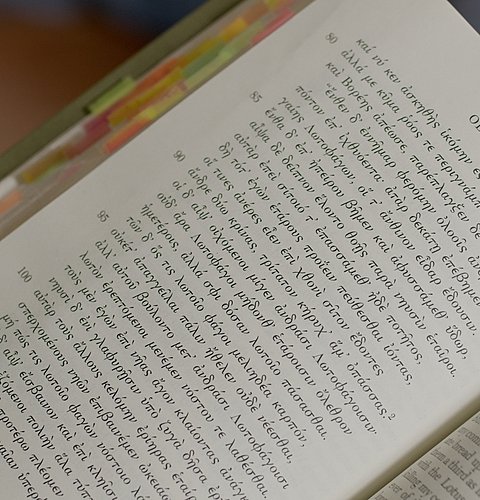 καί νύ κεν ἀσκηθὴς ἱκόμην ἐς
80 ἀλλά με κῦμα ῥόος τε
καὶ Βορέης ἀπέωσε, παρέπλαγξεν δὲ
ἔνθεν δ᾽ ἐννῆμαρ φερόμην ὀλοοῖς
πόντον ἐπ᾽ ἰχθυόεντα· ἀτὰρ δεκάτῃ ἐπέβημεν
γαίης Λωτοφάγων, οἵ τ᾽ ἄνθινον εἶδαρ ἔδουσιν.
85 ἔνθα δ᾽ ἐπ᾽ ἠπείρου βῆμεν καὶ ἀφυσσάμεθ᾽ ὕδωρ,
αἶψα δὲ δεῖπνον ἕλοντο θοῇς παρὰ νηυσὶν ἑταῖροι.
αὐτὰρ ἐπεὶ σίτοιό τ᾽ ἐπασσάμεθ᾽ ἠδὲ ποτῆτος,
δὴ τότ᾽ ἐγὼν ἑτάρους προΐειν πεύθεσθαι ἰόντας,
οἵ τινες ἀνέρες εἶεν ἐπὶ χθονὶ σῖτον ἔδοντες
90 ἄνδρε δύω κρίνας, τρίτατον κήρυχ᾽ ἅμ᾽ ὀπάσσας.²
οἱ δ᾽ αἶψ᾽ οἰχόμενοι μίγεν ἀνδράσι Λωτοφάγοισιν·
οὐδ᾽ ἄρα Λωτοφάγοι μήδονθ᾽ ἑτάροισιν ὄλεθρον
ἡμετέροις, ἀλλά σφι δόσαν λωτοῖο πάσασθαι.
τῶν δ᾽ ὅς τις λωτοῖο φάγοι μελιηδέα καρπόν,
95 οὐκέτ᾽ ἀπαγγεῖλαι πάλιν ἤθελεν οὐδὲ νέεσθαι,
ἀλλ᾽ αὐτοῦ βούλοντο μετ᾽ ἀνδράσι Λωτοφάγοισι
λωτὸν ἐρεπτόμενοι μενέμεν νόστου τε λαθέσθαι.
τοὺς μὲν ἐγὼν ἐπὶ νῆας ἄγον κλαίοντας
νηυσὶ δ᾽ ἐνὶ γλαφυρῇσιν ὑπὸ ζυγὰ δῆσα
100 αὐτὰρ τοὺς ἄλλους κελόμην ἐρίηρας
σπερχομένους νηῶν ἐπιβαινέμεν
μή πώς τις λωτοῖο φαγὼν νόστοιο
αἶψ᾽ εἴσβαινον καὶ ἐπὶ κληῖσι
πολιὴν ἅλα
προτέρω πλέομεν